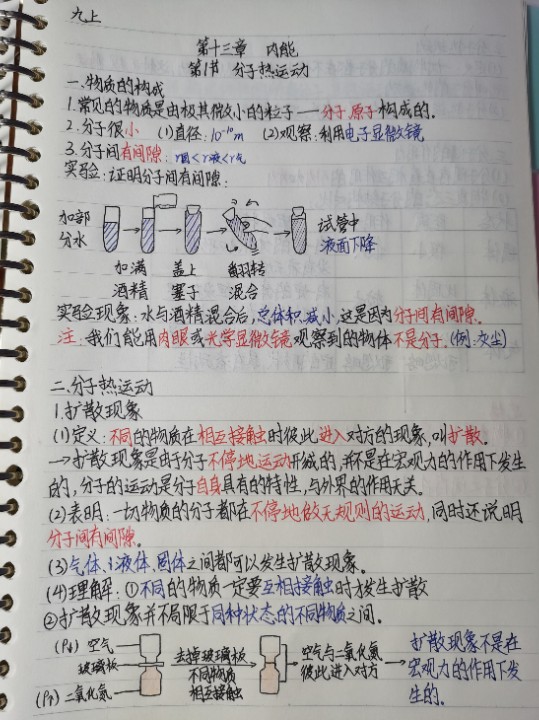 九上
第十三章 内能
第1节 分子热运动
一、物质的构成
1.常见的物质是由极其微小的粒子——分子、原子构成的。
2.分子很小 (1)直径:10⁻¹⁰m (2)观察:利用电子显微镜
3.分子间有间隙: r固<r液<r气
实验:证明分子间有间隙:
加部分水
加满酒精
盖上塞子
翻转混合
试管中液面下降
实验现象:水与酒精混合后,总体积减小,这是因为分子间有间隙。
注:我们能用肉眼或光学显微镜观察到的物体不是分子。(例:灰尘)
二、分子热运动
1.扩散现象
(1)定义:不同的物质在相互接触时彼此进入对方的现象,叫扩散。
→扩散现象是由于分子不停地运动形成的,并不是在宏观力的作用下发生
的,分子的运动是分子自身具有的特性,与外界的作用无关。
(2)表明:一切物质的分子都在不停地做无规则的运动,同时还说明
分子间有间隙。
(3)气体、液体、固体之间都可以发生扩散现象。
(4)理解:①不同的物质一定要互相接触时才发生扩散
②扩散现象并不局限于同种状态的不同物质之间。
空气
玻璃板
二氧化氮
去掉玻璃板
不同物质
相互接触
空气与二氧化氮
彼此进入对方
扩散现象不是在
宏观力的作用下发
生的。